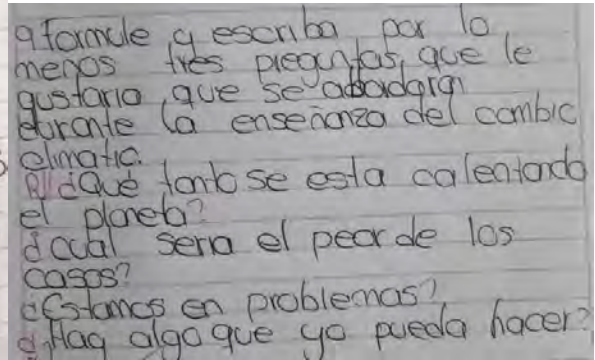 9 formule y escriba por lo
menos tres preguntas, que le
gustaria, que se abordaran
durante la enseñanza del cambic
climatic.
R// ¿Qué tanto se esta calentando
el planeta?
¿cual seria el peor de los
casos?
¿Estamos en problemas?
¿Hay algo que yo pueda hacer?